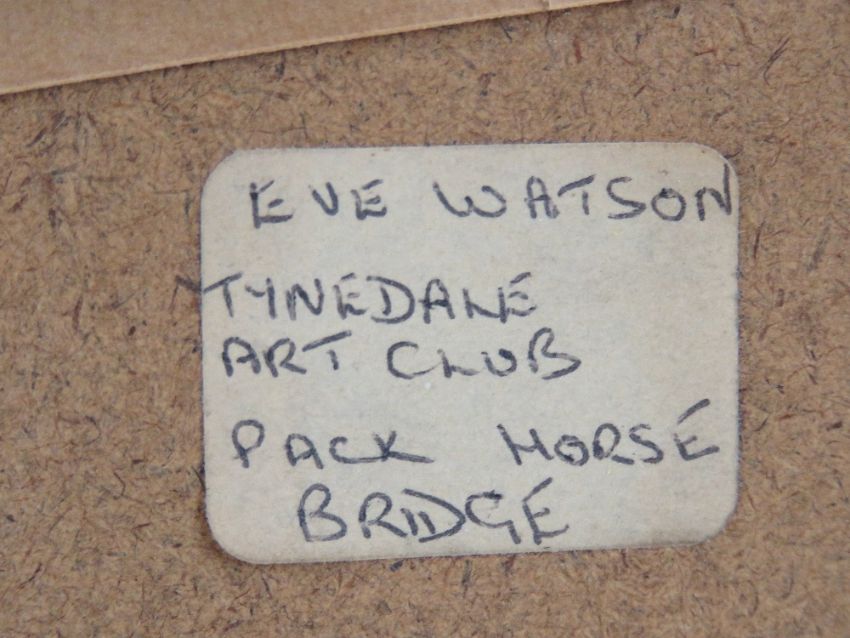 EVE WATSON
TYNEDALE
ART CLUB
PACK HORSE
BRIDGE